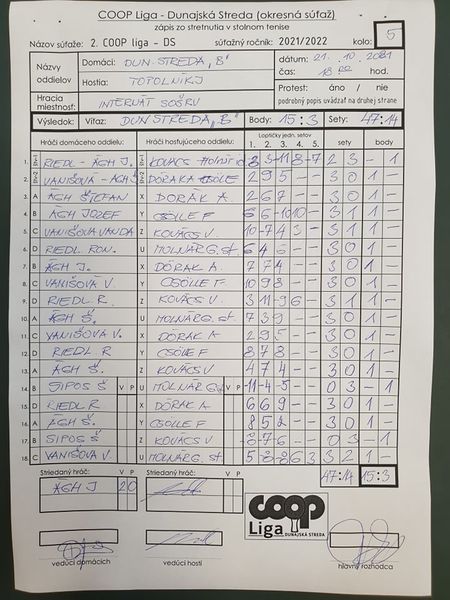 COOP Liga - Dunajská Streda (okresná súťaž)
zápis zo stretnutia v stolnom tenise
Názov súťaže: 2. COOP liga - DS súťažný ročník: 2021/2022 kolo: 5
Názvy oddielov Domáci: DUN. STREDA „B" dátum: 21. 10. 2021
Hostia: TOPOLNÍKJ čas: 18 00 hod
Hracia miestnosť: INTERNÁT SOŠRV Protest: áno / nie
podrobný popis uvádzať na druhej strane
Výsledok: Víťaz: DUN STREDA „B" Body: 15:3 Sety: 47:14
Hráči domáceho oddielu: Hráči hosťujúceho oddielu: Loptičky jedn. setov sety body
1. 2. 3. 4. 5.
1. RIEDL - ÁGH J. KOVÁCS 2 3 - 1
2. VANIŠOVÁ - ÁGH Š DÓRÁK A CSÖLE 2 9 5 - - 3 0 1 -
3. A ÁGH ŠTEFAN X DORÁK A 2 6 7 - - 3 0 1 -
4. B ÁGH JOZEF Y CSÖLLE F 6 6 -10 10 - 3 1 1 -
5. C VANIŠOVÁ VANDA Z KOVÁCS V 10 -7 4 3 - 3 1 1 -
6. D RIEDL RON. U MOLNÁR G. st 6 4 6 - - 3 0 1 -
7. B ÁGH J. X DÓRÁK A 7 7 4 - - 3 0 1 -
8. C VANIŠOVÁ V. Y CSÖLLE F 10 9 8 - - 3 0 1 -
9. D RIEDL R. Z KOVÁCS V 3 -11 9 6 - 3 1 1 -
10. A ÁGH Š. U MOLNÁR G. st 7 3 9 - - 3 0 1 -
11. C VANIŠOVÁ V. X DÓRÁK A 2 9 5 - - 3 0 1 -
12. D RIEDL R Y CSÖLE F 8 7 8 - - 3 0 1 -
13. A ÁGH Š. Z KOVÁCS V 4 7 4 - - 3 0 1 -
14. B SIPOS Š V P U MOLNÁR G V P -11 -4 -5 - - 0 3 - 1
15. D RIEDL R X DÓRÁK A 6 6 9 - - 3 0 1 -
16. A ÁGH Š. Y CSÖLLE F 8 5 2 - - 3 0 1 -
17. B SIPOS Š Z KOVÁCS V -8 -7 -6 - - 0 3 - 1
18. C VANIŠOVÁ V U MOLNÁR G. st 5 -8 -8 6 3 3 2 1 -
Striedaný hráč: V P Striedaný hráč: V P 47:14 15:3
ÁGH J 2 0
coop
Liga DUNAJSKÁ STREDA
vedúci domácich vedúci hostí hlavný rozhodca